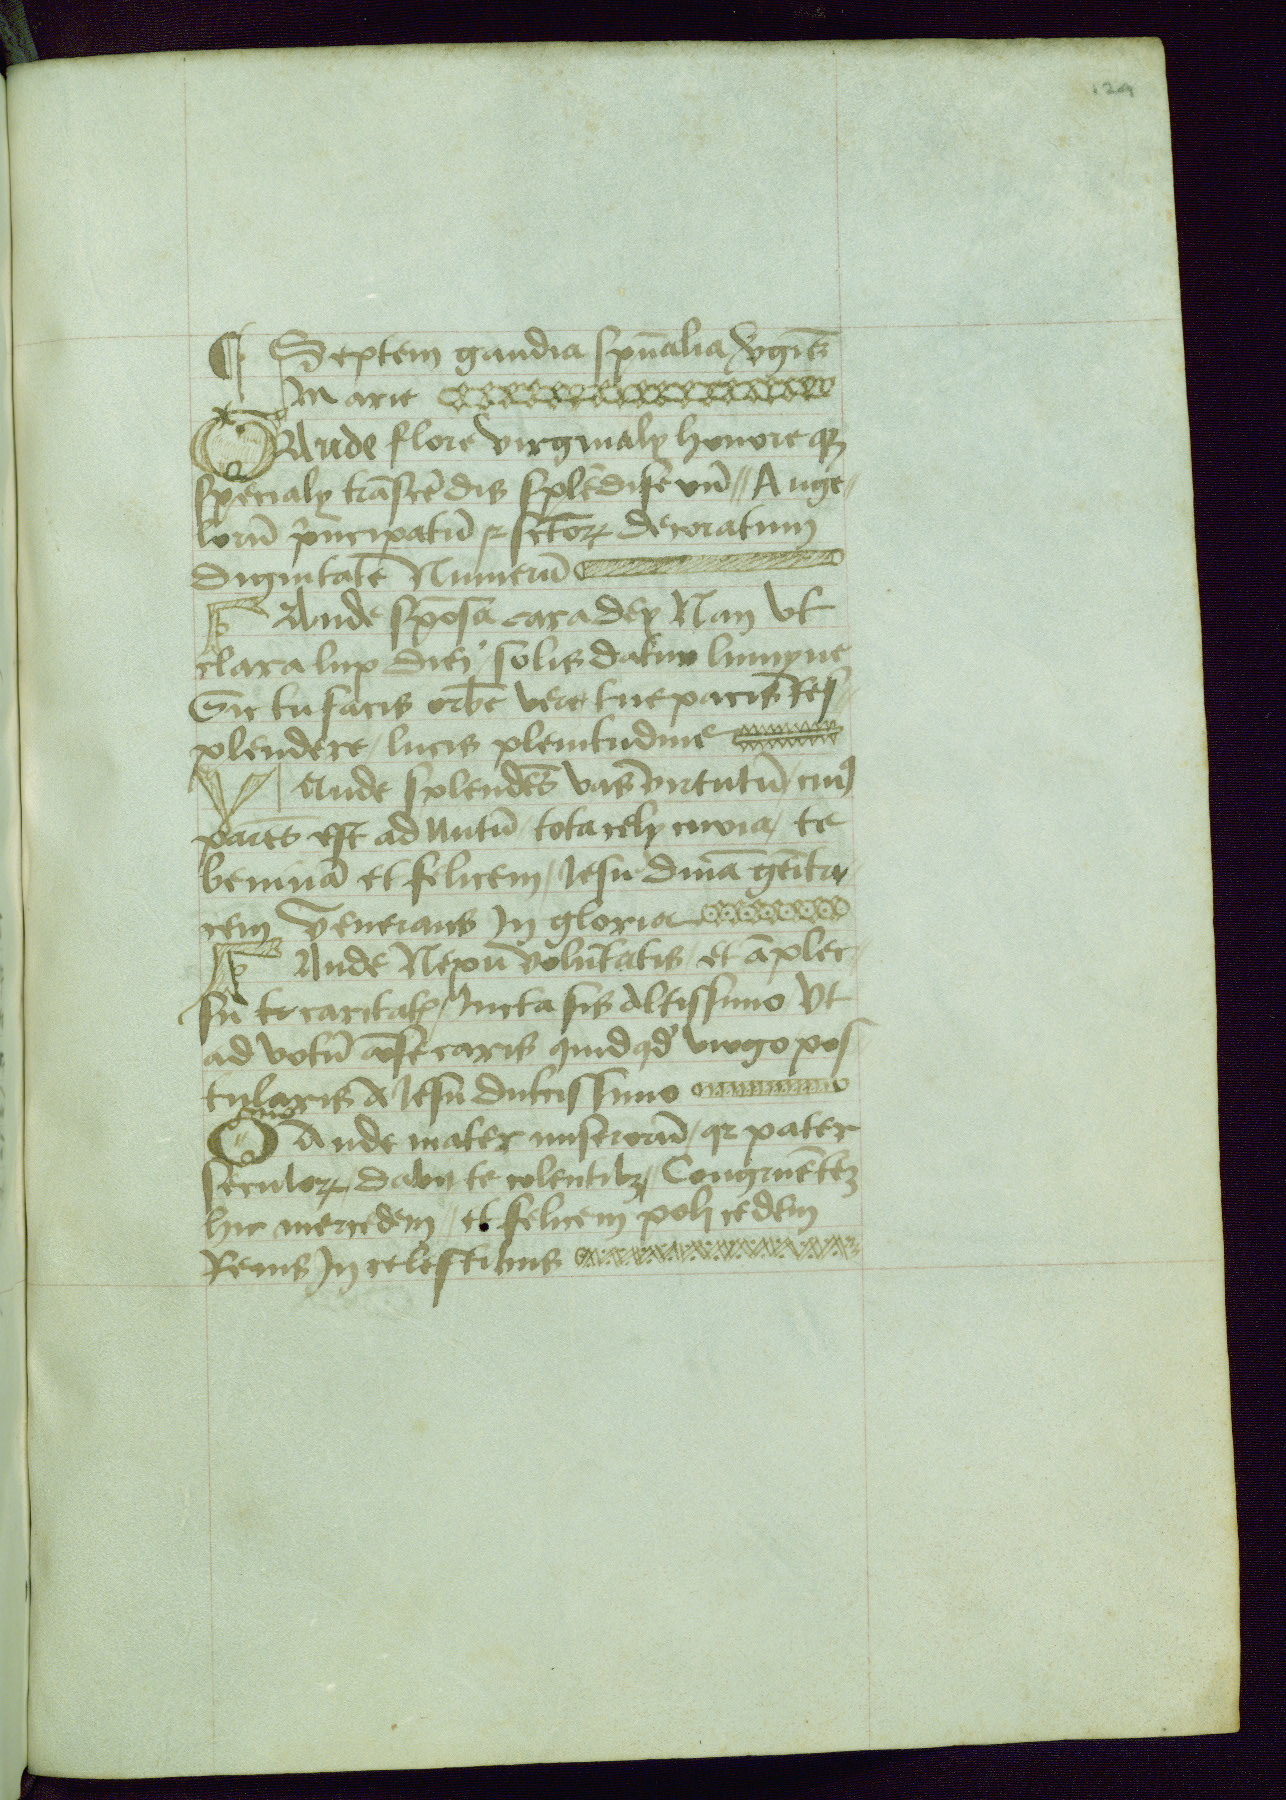 124
¶ Septem gaudia sp̄ualia v̄gīs
Marie
GAude flore virginaly honore qꝫ
specialy trāscēdis splēdiferū // Ange//
lorū p̄ncipatū et sctōꝝ decoratum
dignitatē Numerū
GAude spōsa cara dey Nam Vt
clara lux diei solis datur lumyne
Sic tu facis orbē vere tue pacis Res//
plendere / lucis plenitudine
GAude splendēs vas virtutū / cuiꝰ
parēs est ad Nutū / tota cely curia / te
beninā et felicem / Jesu dinā gēitri//
cem Venerans In gloria
GAude Nexu volūtatis et āplec//
su te caritatꝭ / Jucta sis altissimo Vt
ad votū cōsecaris quidqd' virgo pos
tularis A Jesu dulcissimo
GAude mater miserorū / qr pater
seculoꝝ / dabit te colentibꝫ / Congruētē
hic mercedem / et felicem poli cedem
Renis In celestibus